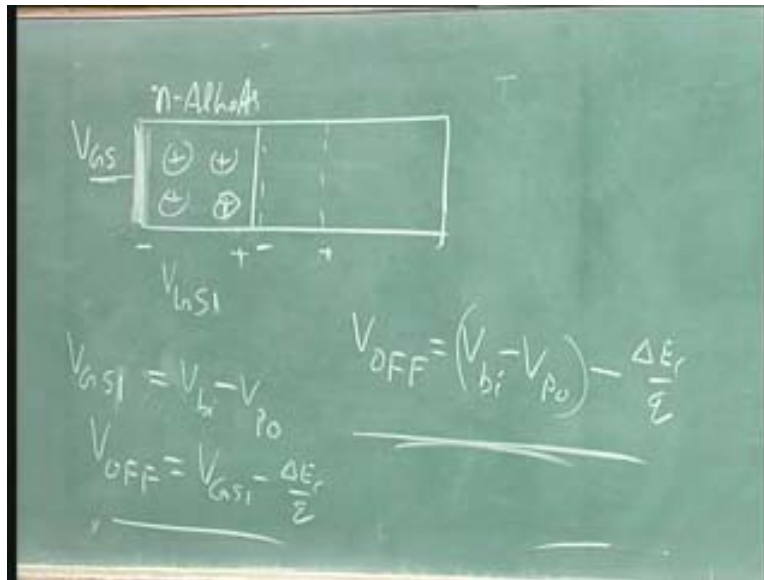 n-AlGaAs
V_GS
⊕ ⊕
⊕ ⊕
- + - +
V_GS1
V_GS1 = V_bi - V_po
V_OFF = V_GS1 - ΔE_c/q
V_OFF = (V_bi - V_po) - ΔE_c/q